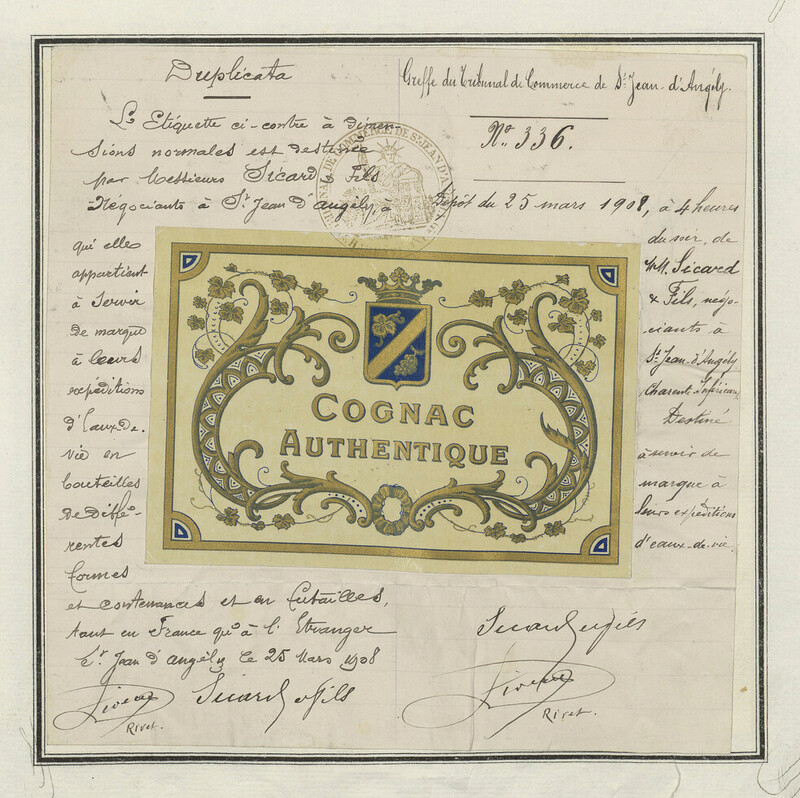 Duplicata
L'Etiquette ci-contre à dimen-
sions normales est destinée
par Messieurs Sicard & Fils
Négociants à St Jean d'angély, à
qui elle
appartient
à servir
de marque
à leurs
expéditions
d'Eaux-de-
vie en
bouteilles
de diffé-
rentes
formes
et contenances et en futailles,
tant en France qu'à l'Etranger
St Jean d'angély le 25 Mars 1908
Sicard & fils
Rivet.
Greffe du Tribunal de Commerce de St Jean-d'Angély.
No. 336.
Dépôt du 25 mars 1908, à 4 heures
du soir, de
MM. Sicard
& Fils, négo-
ciants à
St Jean-d'Angély
Charente-Inférieure
Destiné
à servir de
marque à
leurs expéditions
d'eaux-de-vie.
Sicard & fils
Rivet.
TRIBUNAL DE COMMERCE DE ST JEAN D'
COGNAC
AUTHENTIQUE